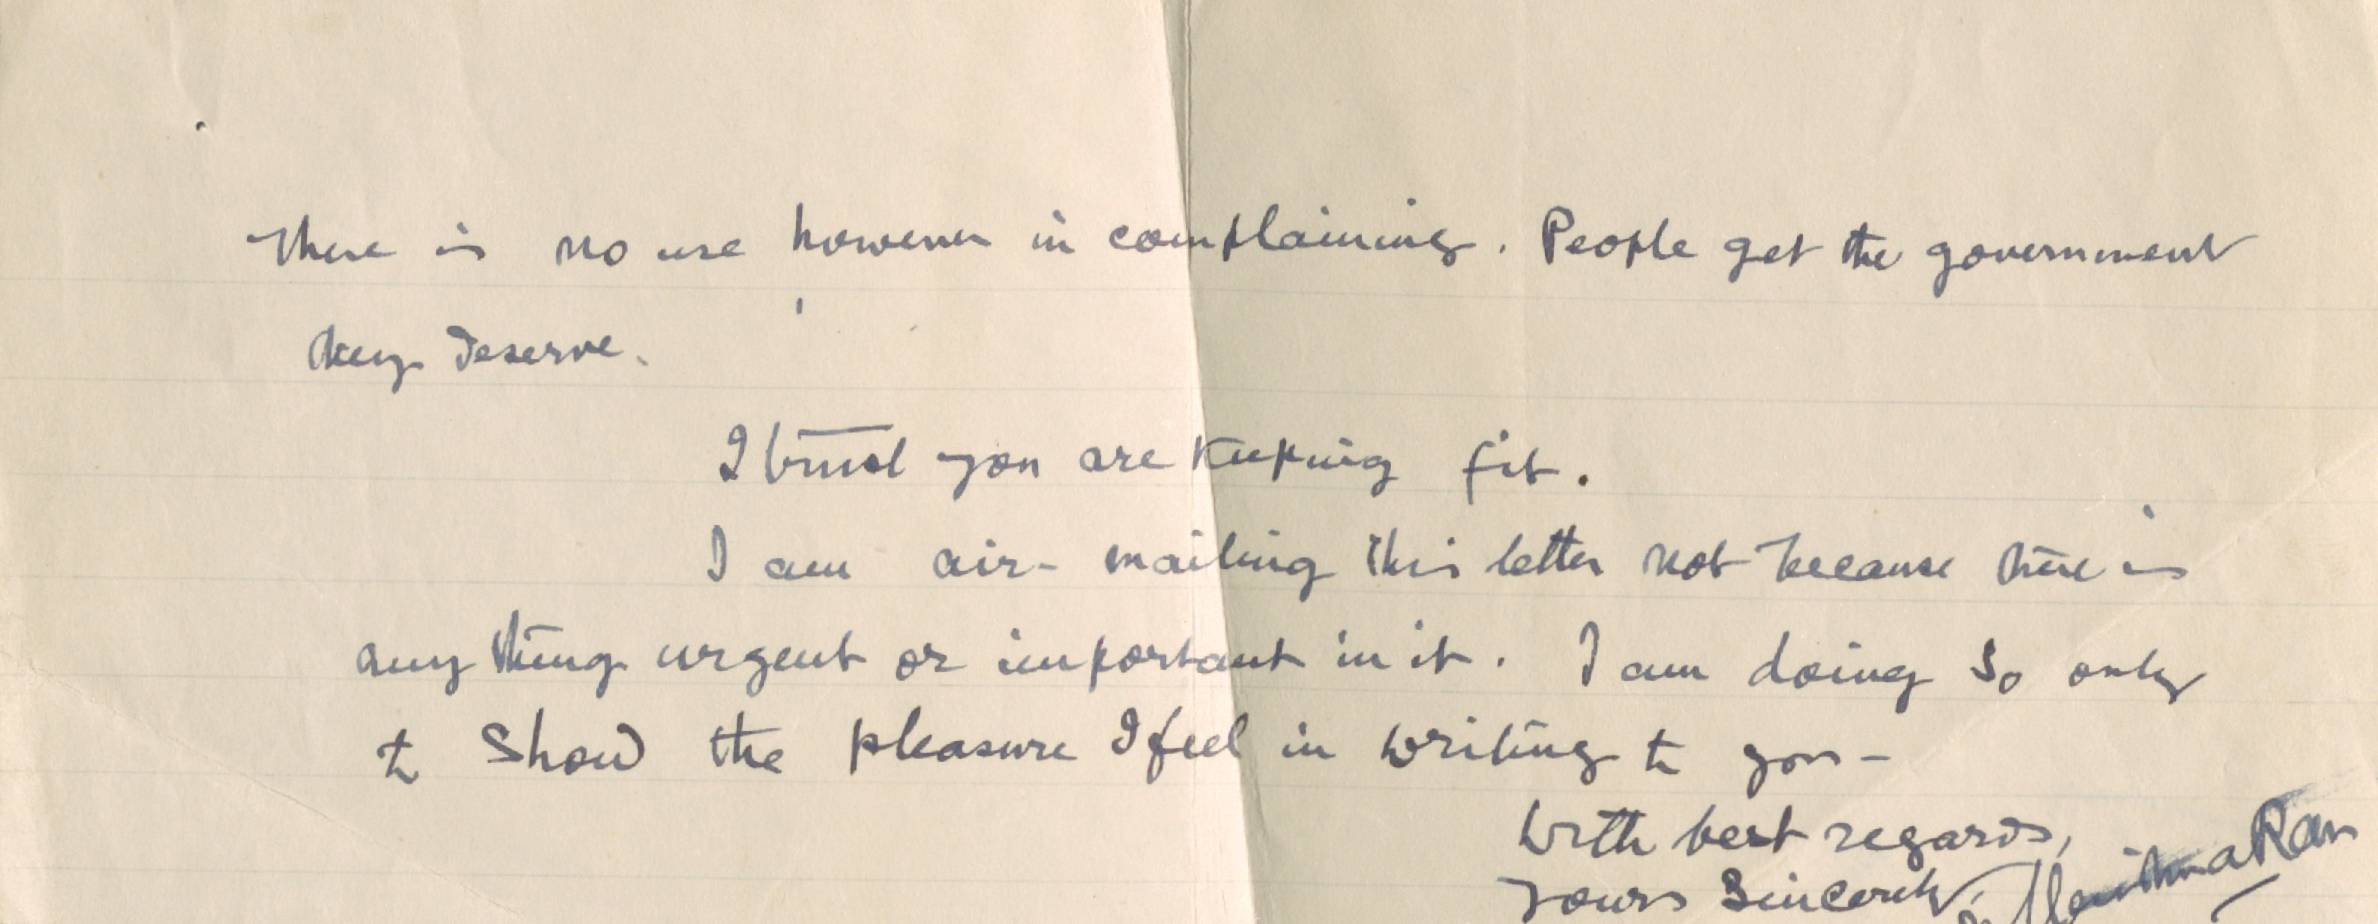 There is no use however in complaining. People get the government
they deserve.
I trust you are keeping fit.
I am air-mailing this letter not because there is
any thing urgent or important in it. I am doing so only
to show the pleasure I feel in writing to you-
With best regards,
Yours Sincerely,